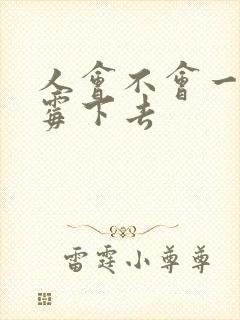 人會不會一
霉下去
雷霆小尊尊